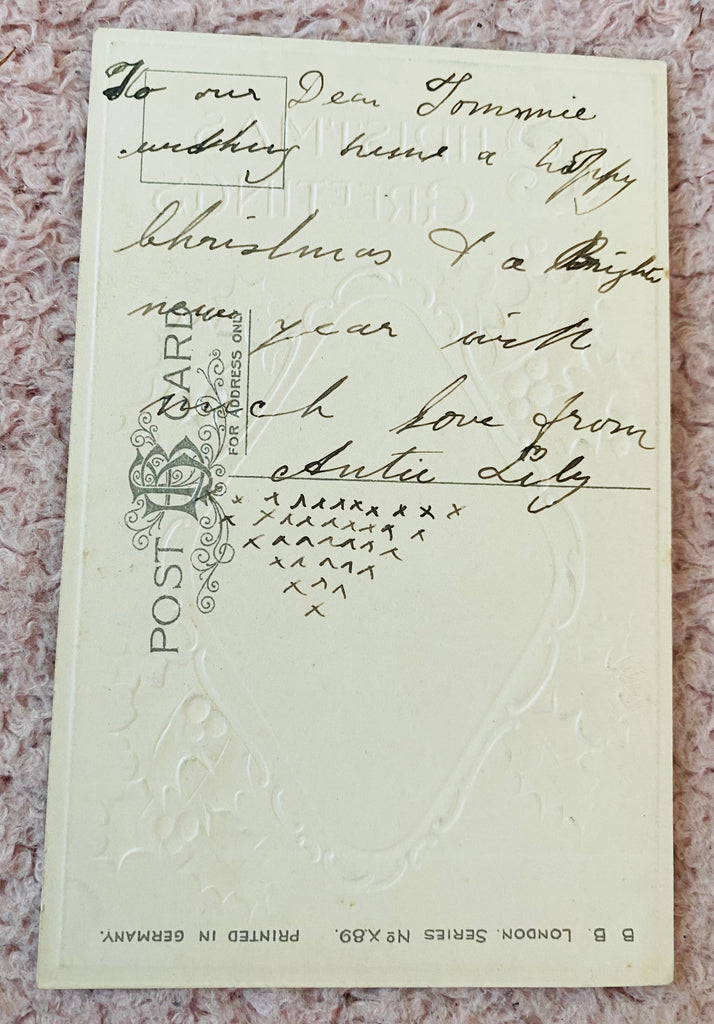 To our Dear Tommie
wishing hime a happy
Christmas & a Bright
new year with
much love from
Antie Lily
x x x x x x x x x x x x
x x x x x x x x x x
x x x x x x x x
x x x x x x
x x x
x
POST CARD
FOR ADDRESS ONLY
BB
CHRISTMAS
GREETINGS
B B. LONDON. SERIES No X.89. PRINTED IN GERMANY.